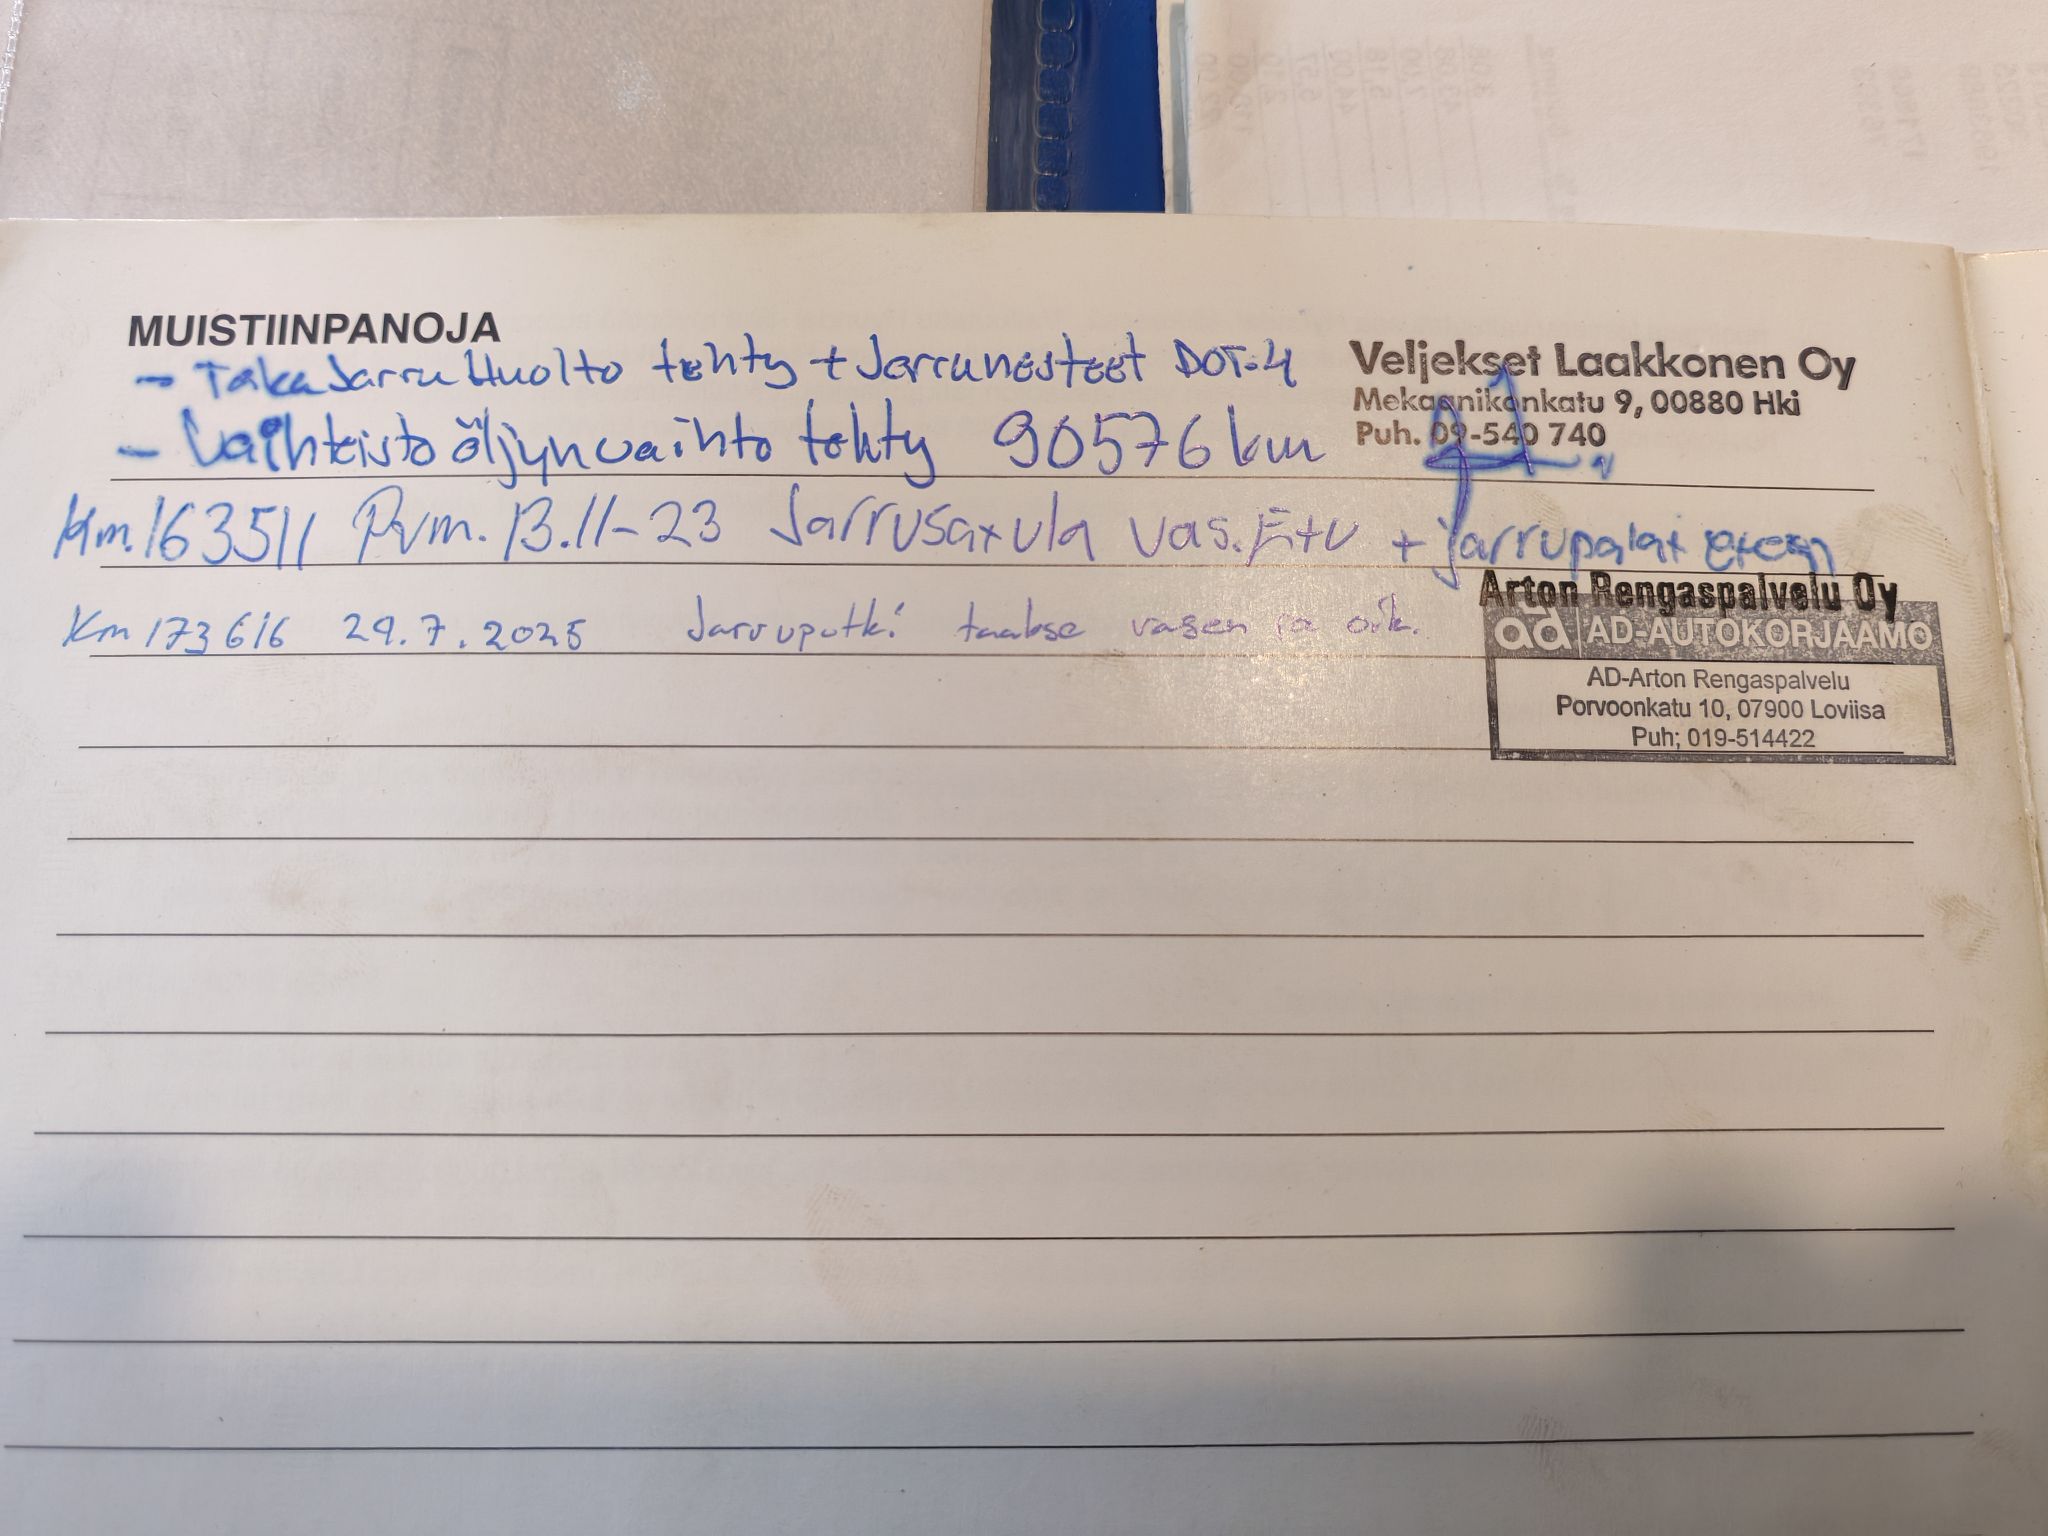 MUISTIINPANOJA
- TakaJarruHuolto tehty + Jarrunesteet DOT-4
- Vaihteisto öljynvaihto tehty 90576 km
Veljekset Laakkonen Oy
Mekaanikonkatu 9, 00880 Hki
Puh. 09-540 740
Km. 163511 Pvm. 13.11-23 Jarrusatula vas. Etu + jarrupalat eteen
Km 173616 29.7.2025 Jarruputki taakse vasen ja oik.
Arton Rengaspalvelu Oy
ad AD-AUTOKORJAAMO
AD-Arton Rengaspalvelu
Porvoonkatu 10, 07900 Loviisa
Puh; 019-514422